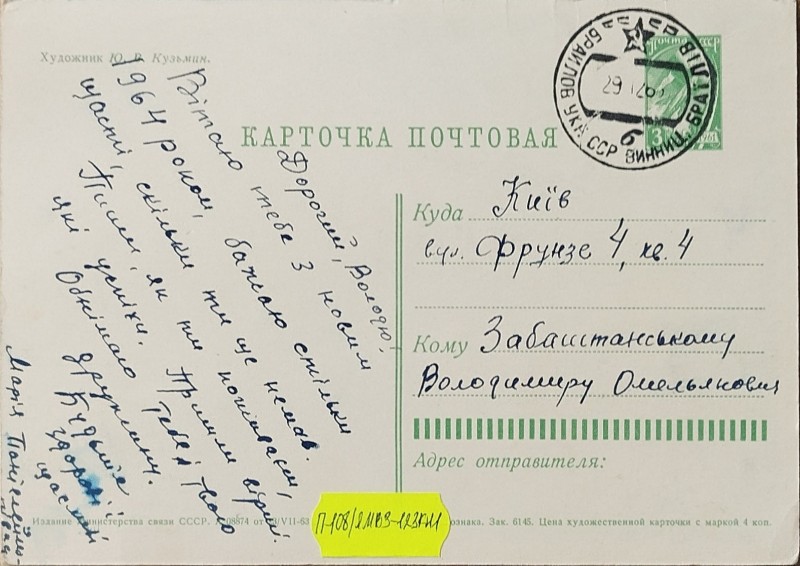 Художник Ю. В. Кузьмин.
КАРТОЧКА ПОЧТОВАЯ
ПОЧТА СССР
БРАИЛОВ УКР. ССР ВИННИЦ.
6
Дорогий Володю!
Вітаю тебе з новим
1964 роком, бажаю стільки
щастя, скільки ти ще не мав.
Пиши, як ти поживаєш,
які успіхи. Пришли вірші.
Обнімаю Тебе і твою
дружину.
Будьте
здорові і
щасливі
Марія
Куда Київ
вул. Фрунзе 4, кв. 4
Кому Забаштанському
Володимиру Омельянович
Адрес отправителя:
Издание Министерства связи СССР.
Зак. 6145. Цена художественной карточки с маркой 4 коп.